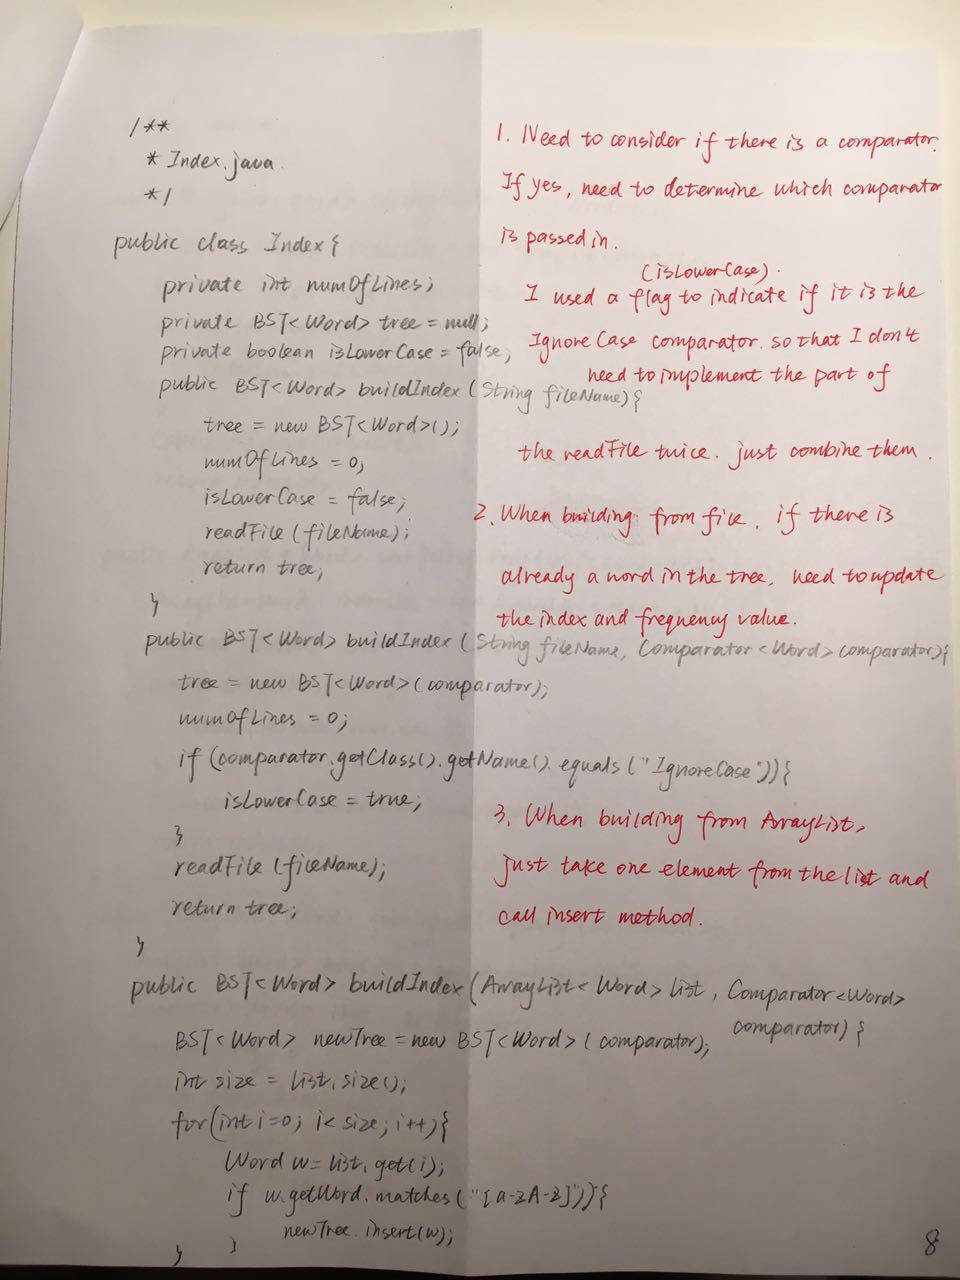 /**
* Index.java
*/
public class Index{
private int numOfLines;
private BST<Word> tree = null;
private boolean isLowerCase = false;
public BST<Word> buildIndex (String fileName){
tree = new BST<Word>();
numOfLines = 0;
isLowerCase = false;
readFile (fileName);
return tree;
}
public BST<Word> buildIndex (String fileName, Comparator<Word> comparator){
tree = new BST<Word>(comparator);
numOfLines = 0;
if (comparator.getClass().getName().equals("IgnoreCase")){
isLowerCase = true;
}
readFile (fileName);
return tree;
}
public BST<Word> buildIndex (ArrayList<Word> list, Comparator<Word>
comparator) {
BST<Word> newTree = new BST<Word> (comparator);
int size = list.size();
for(int i=0; i< size; i++){
Word w = list.get(i);
if w.getWord.matches("[a-zA-Z]")){
newTree.insert(w);
}
}
1. Need to consider if there is a comparator.
If yes, need to determine which comparator
is passed in.
(isLowerCase).
I used a flag to indicate if it is the
Ignore Case comparator. so that I don't
need to implement the part of
the readFile twice. just combine them.
2. When building from file, if there is
already a word in the tree, need to update
the index and frequency value.
3. When building from ArrayList,
just take one element from the list and
call insert method.
8